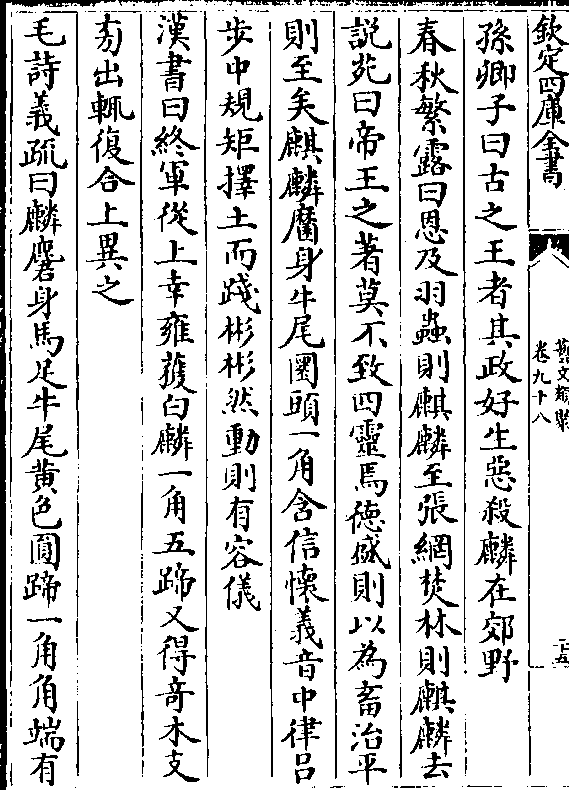 欽定四庫全書
藝文類聚
卷九十八
十五
孫卿子曰古之王者其政好生惡殺麟在郊野
春秋繁露曰恩及羽蟲則麒麟至張網焚林則麒麟去
説苑曰帝王之著莫不致四靈焉德盛則以為畜治平
則至矣麒麟麕身牛尾圜頭一角含信懷義音中律吕
步中規矩擇土而踐彬彬然動則有容儀
漢書曰終軍從上幸雍獲白麟一角五蹄又得奇木支
旁出輒復合上異之
毛詩義疏曰麟麏身馬足牛尾黄色圓蹄一角角端有